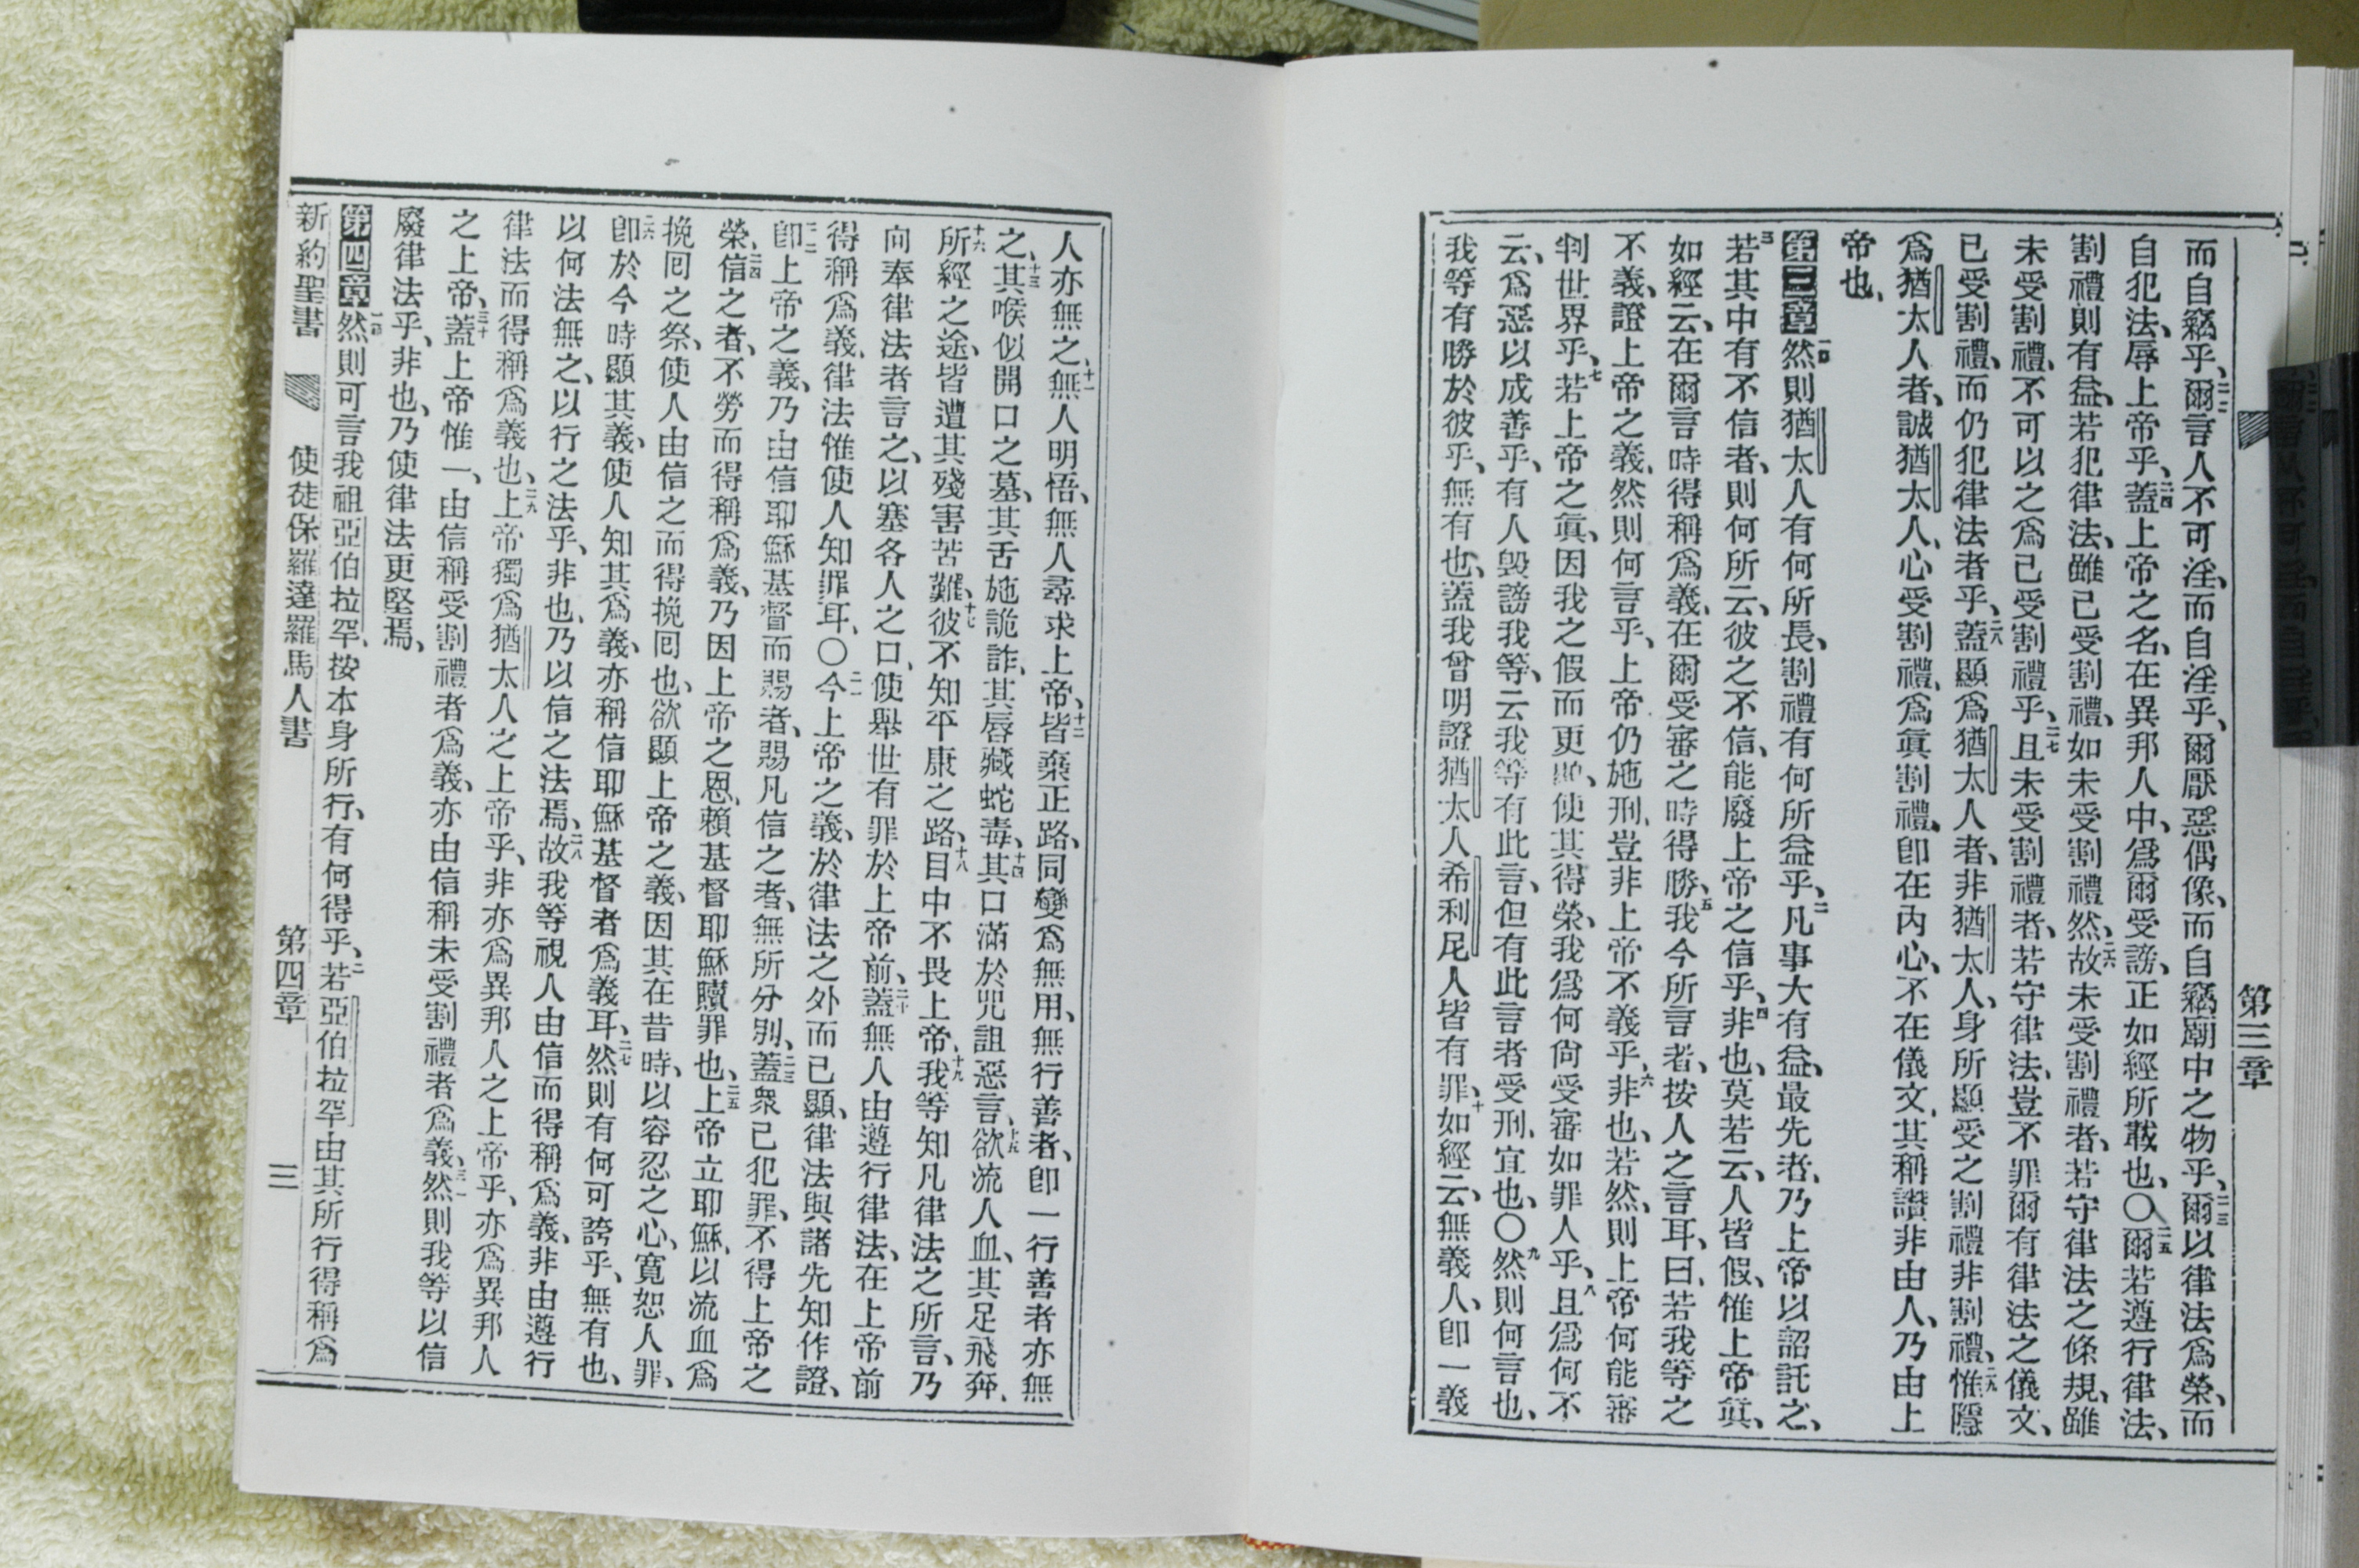 第三章
而自竊乎、二二爾言人不可淫、而自淫乎、爾厭惡偶像、而自竊廟中之物乎、二三爾以律法爲榮、而
自犯法、辱上帝乎、二四蓋上帝之名、在異邦人中、爲爾受謗、正如經所載也、〇二五爾若遵行律法、
割禮則有益、若犯律法、雖已受割禮、如未受割禮然、二六故未受割禮者、若守律法之條規、雖
未受割禮、不可以之爲已受割禮乎、二七且未受割禮者、若守律法、豈不罪爾有律法之儀文、
已受割禮、而仍犯律法者乎、二八蓋顯爲猶太人者、非猶太人、身所顯受之割禮、非割禮、二九惟隱
爲猶太人者、誠猶太人、心受割禮、爲眞割禮、卽在內心、不在儀文、其稱讚非由人、乃由上
帝也、
第三章一然則猶太人有何所長、割禮有何所益乎、二凡事大有益、最先者、乃上帝以詔託之、
三若其中有不信者、則何所云、彼之不信、能廢上帝之信乎、四非也、莫若云、人皆假、惟上帝眞、
如經云、在爾言時得稱爲義、在爾受審之時得勝、五我今所言者、按人之言耳、曰、若我等之
不義、證上帝之義、然則何言乎、上帝仍施刑、豈非上帝不義乎、六非也、若然、則上帝何能審
判世界乎、七若上帝之眞、因我之假而更顯、使其得榮、我爲何尙受審如罪人乎、八且爲何不
云、爲惡以成善乎、有人毀謗我等、云我等有此言、但有此言者受刑、宜也、〇九然則何言也、
我等有勝於彼乎、無有也、蓋我曾明證猶太人希利尼人皆有罪、十如經云、無義人、卽一義
人亦無之、十一無人明悟、無人尋求上帝、十二皆棄正路、同變爲無用、無行善者、卽一行善者亦無
之、十三其喉似開口之墓、其舌施詭詐、其唇藏蛇毒、十四其口滿於咒詛惡言、十五欲流人血、其足飛奔、
十六所經之途、皆遭其殘害苦難、十七彼不知平康之路、十八目中不畏上帝、十九我等知凡律法之所言、乃
向奉律法者言之、以塞各人之口、使舉世有罪於上帝前、二十蓋無人由遵行律法、在上帝前
得稱爲義、律法惟使人知罪耳、〇二一今上帝之義、於律法之外而已顯、律法與諸先知作證、
二二卽上帝之義、乃由信耶穌基督而賜者、賜凡信之者、無所分別、二三蓋衆已犯罪、不得上帝之
榮、二四信之者、不勞而得稱爲義、乃因上帝之恩、賴基督耶穌贖罪也、二五上帝立耶穌、以流血爲
挽囘之祭、使人由信之而得挽囘也、欲顯上帝之義、因其在昔時、以容忍之心、寬恕人罪、
二六卽於今時顯其義、使人知其爲義、亦稱信耶穌基督者爲義耳、二七然則有何可誇乎、無有也、
以何法無之、以行之法乎、非也、乃以信之法焉、二八故我等視人由信而得稱爲義、非由遵行
律法而得稱爲義也、二九上帝獨爲猶太人之上帝乎、非亦爲異邦人之上帝乎、亦爲異邦人
之上帝、三十蓋上帝惟一、由信稱受割禮者爲義、亦由信稱未受割禮者爲義、三一然則我等以信
廢律法乎、非也、乃使律法更堅焉、
第四章一然則可言我祖亞伯拉罕、按本身所行、有何得乎、二若亞伯拉罕由其所行得稱爲
新約聖書 使徒保羅達羅馬人書 第四章 三